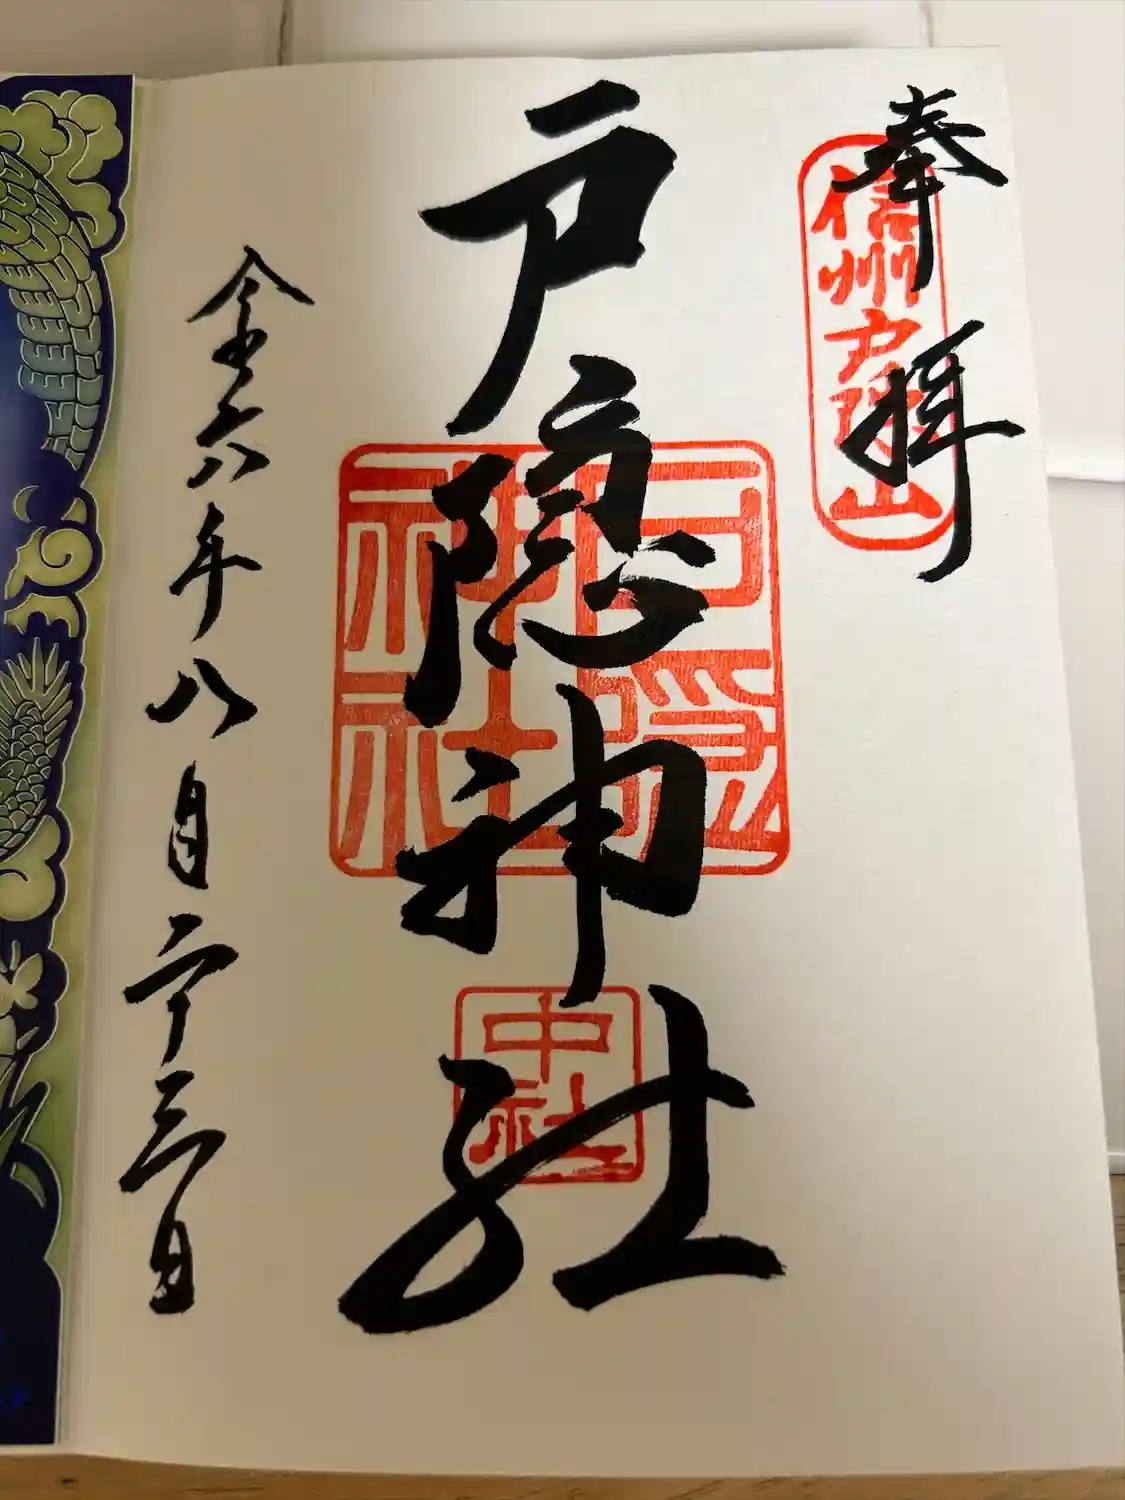 奉拝
信州戸隠山
戸隠神社
戸隠神社
中社
令和六年八月二十三日